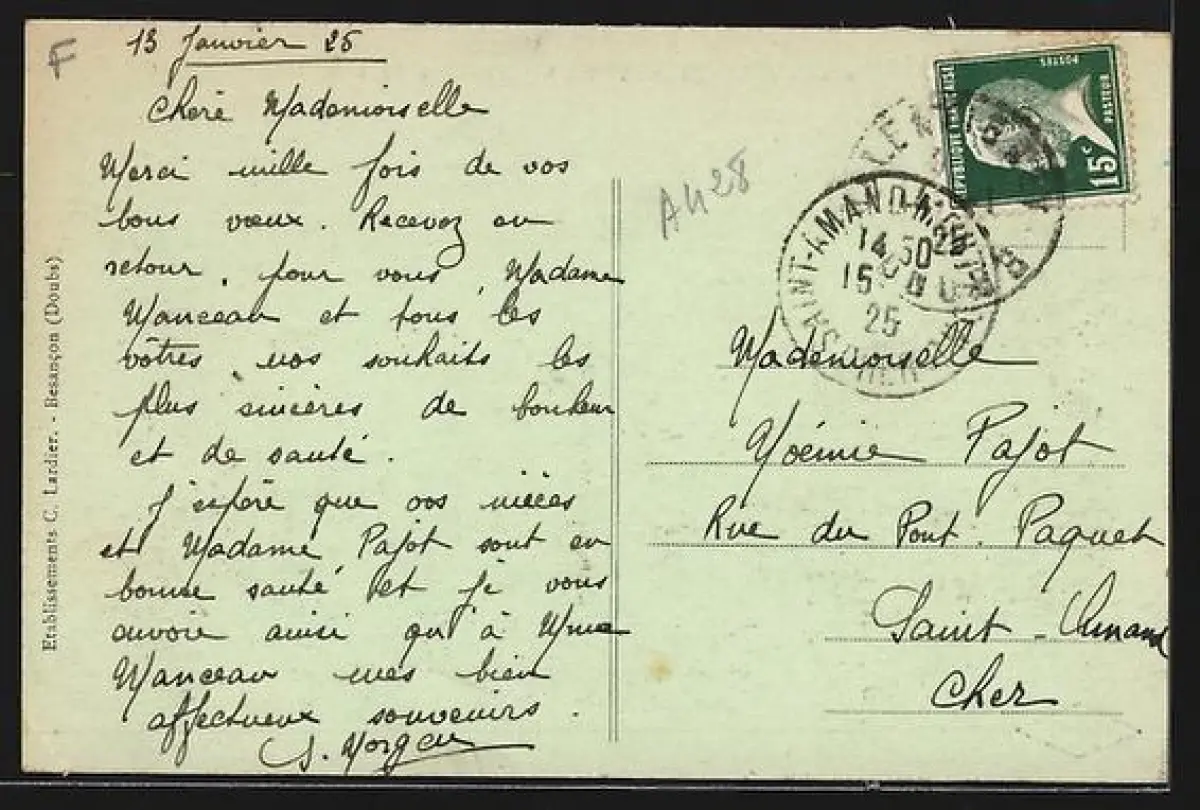 F
13 Janvier 25
Chère Mademoiselle
Merci mille fois de vos
bons vœux. Recevez en
retour, pour vous, Madame
Manceau et tous les
vôtres, nos souhaits les
plus sincères de bonheur
et de santé.
J'espère que vos nièces
et Madame Pajot sont en
bonne santé et je vous
envoie ainsi qu'à Mme
Manceau mes bien
affectueux souvenirs.
Etablissements C. Lardier. - Besançon (Doubs)
A428
REPUBLIQUE FRANÇAISE
POSTES
PASTEUR
15c
SAINT-AMAND
14 30
15
25
Mademoiselle
Noémie Pajot
Rue du Pont. Paquet
Saint-Amand
Cher